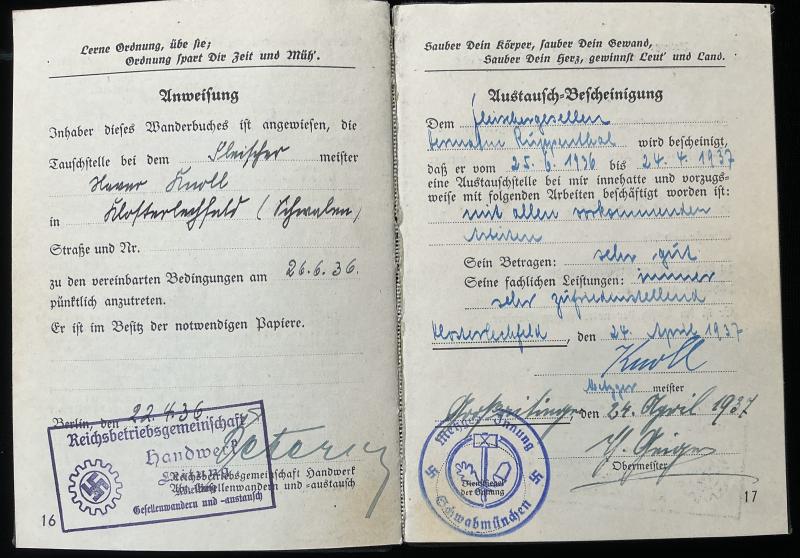 Lerne Ordnung, übe sie;
Ordnung spart Dir Zeit und Müh'.
Anweisung
Inhaber dieses Wanderbuches ist angewiesen, die
Tauschstelle bei dem Fleischer meister
Xaver Knoll
in Klosterlechfeld (Schwaben)
Straße und Nr.
zu den vereinbarten Bedingungen am 26.6.36.
pünktlich anzutreten.
Er ist im Besitz der notwendigen Papiere.
Berlin, den 22.4.36
Reichsbetriebsgemeinschaft
Handwerk
Reichsbetriebsgemeinschaft Handwerk
Gesellenwandern und -austausch
Gesellenwandern und -austausch
16
Sauber Dein Körper, sauber Dein Gewand,
Sauber Dein Herz, gewinnst Leut' und Land.
Austausch-Bescheinigung
Dem Fleischergesellen
Hermann Ruppenthal wird bescheinigt,
daß er vom 25.6.1936 bis 24.4.1937
eine Austauschstelle bei mir innehatte und vorzugs-
weise mit folgenden Arbeiten beschäftigt worden ist:
mit allen vorkommenden
Arbeiten
Sein Betragen: sehr gut
Seine fachlichen Leistungen: immer
sehr zufriedenstellend
Klosterlechfeld, den 24. April 1937
Knoll
Metzger meister
Großaitingen den 24. April 1937
Obermeister
Metzger-Innung
Dienstsiegel
der Innung
Schwabmünchen
17